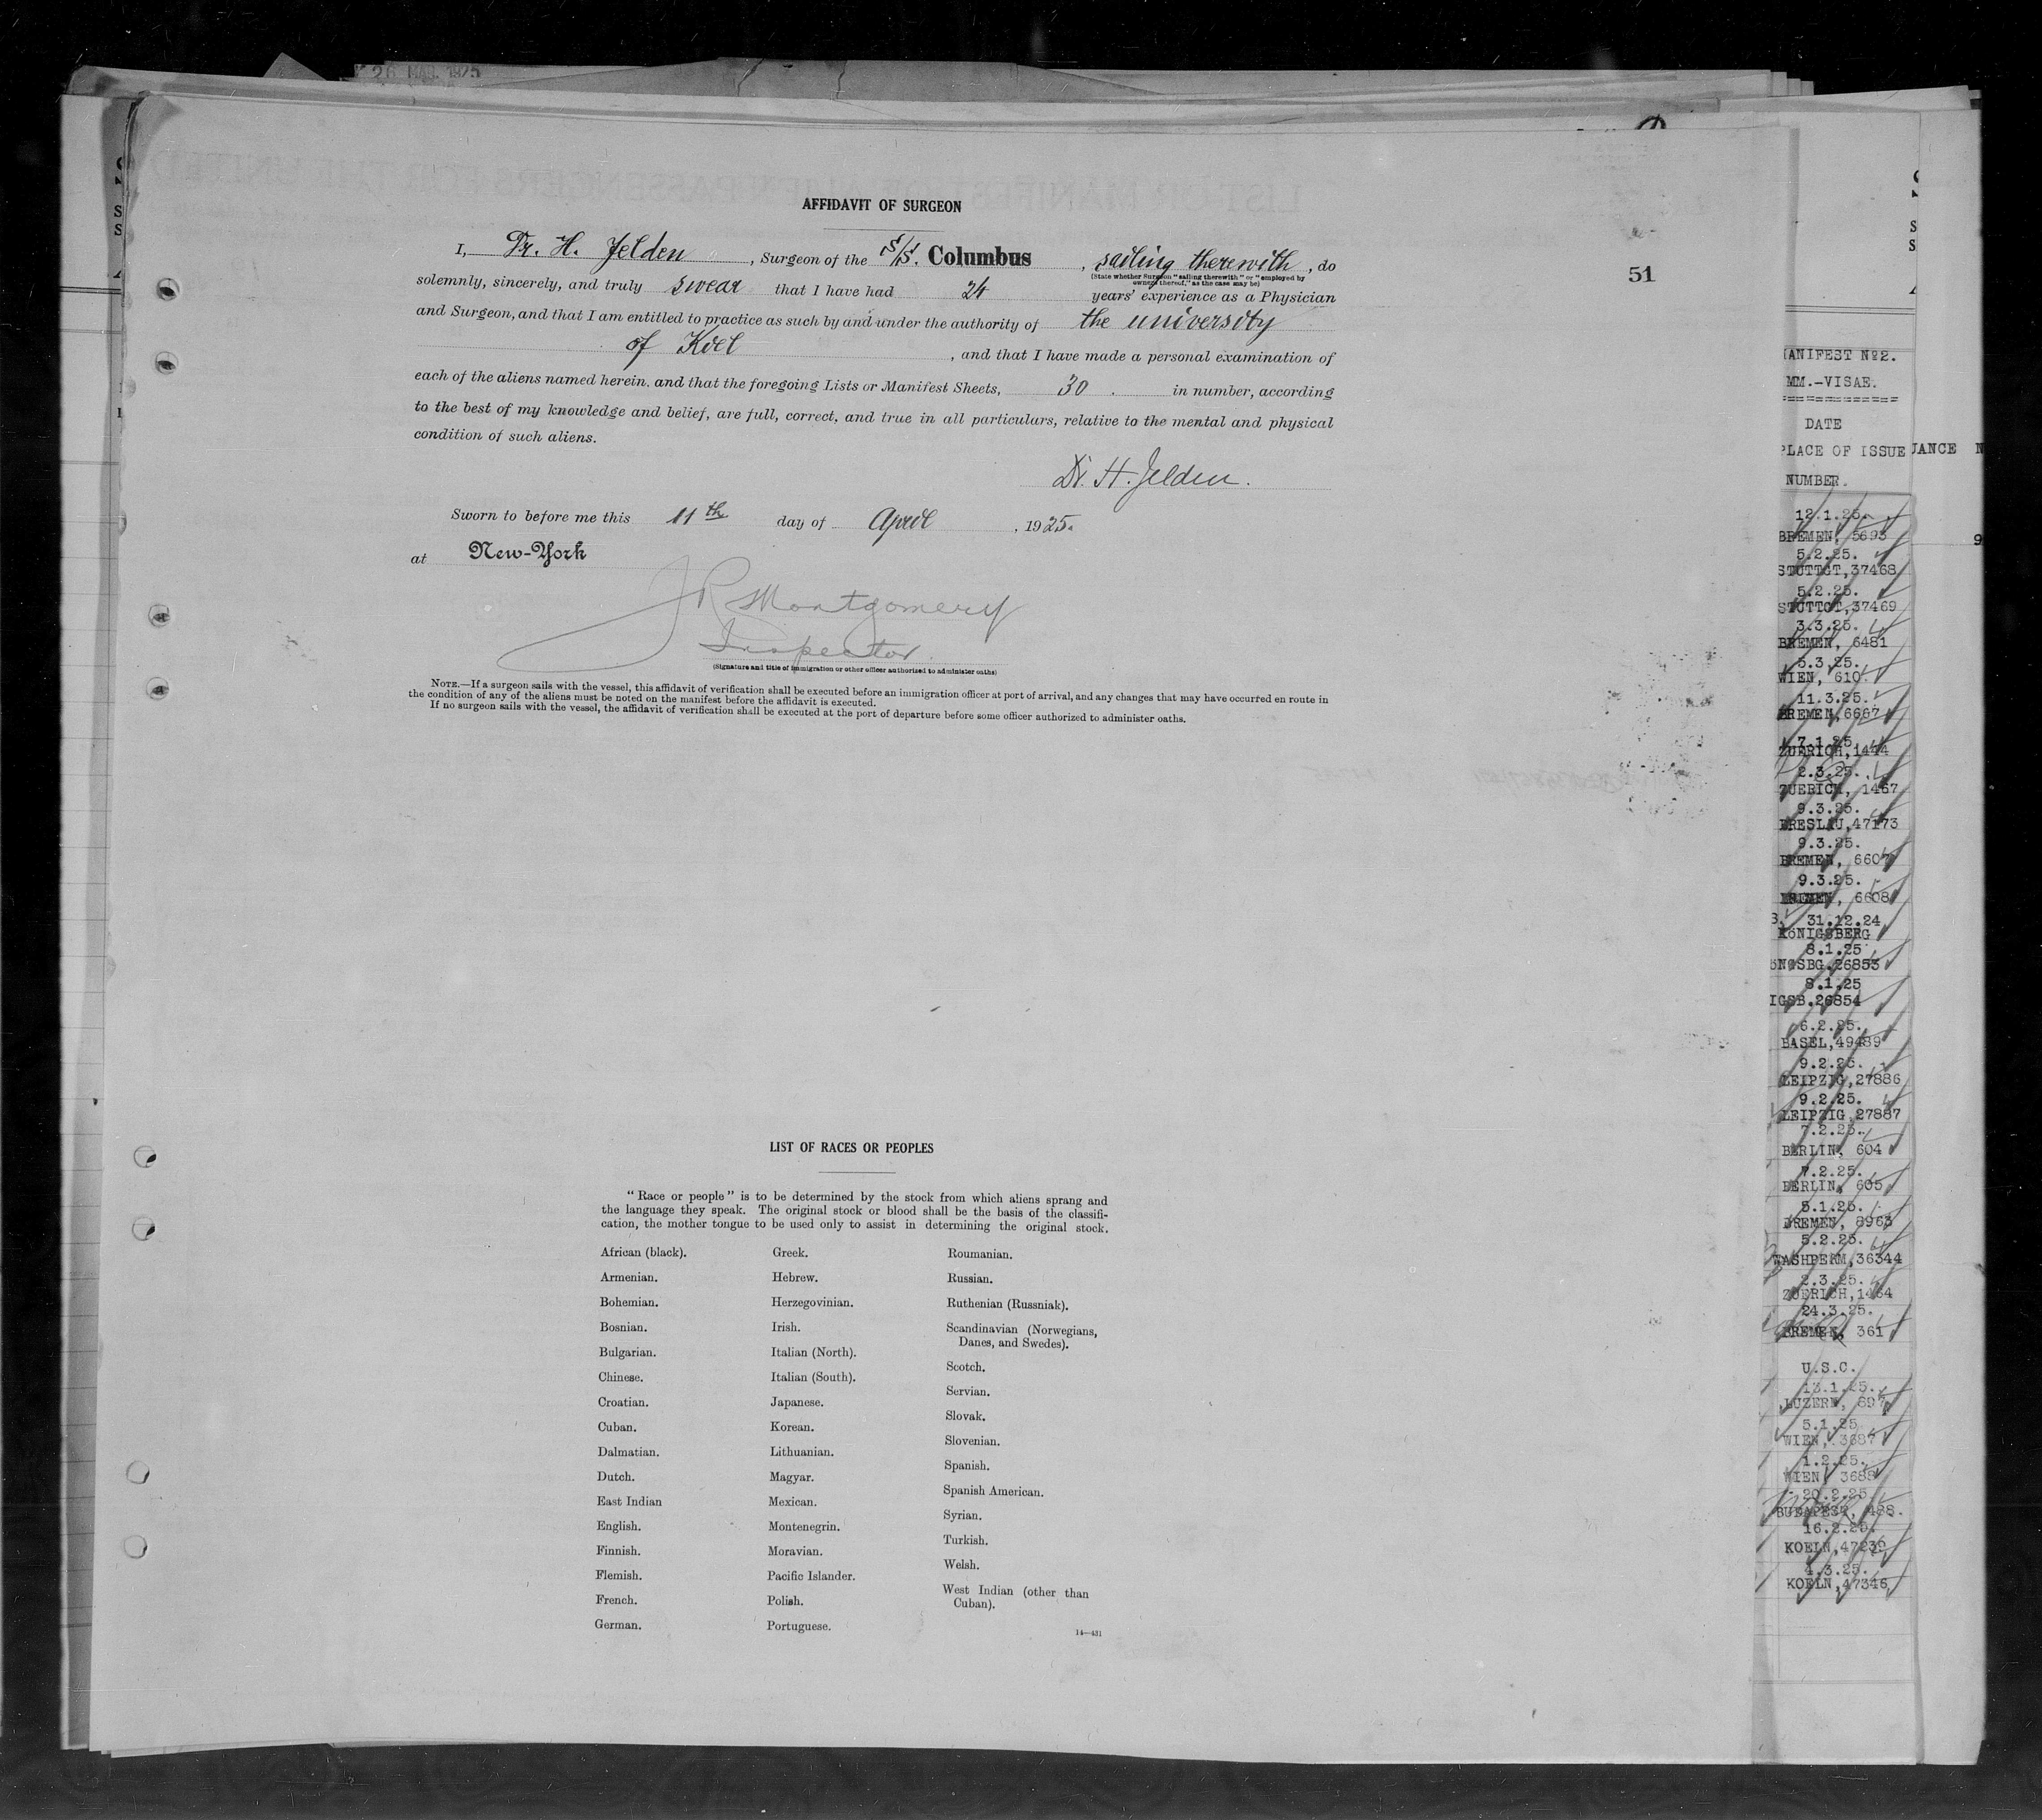 26 MAR. 1925
AFFIDAVIT OF SURGEON
51
I, Dr. H. Jelden, Surgeon of the S/S. Columbus, sailing therewith, do
(State whether Surgeon "sailing therewith" or "employed by
owners thereof," as the case may be)
solemnly, sincerely, and truly swear that I have had 24 years' experience as a Physician
and Surgeon, and that I am entitled to practice as such by and under the authority of the university
of Kiel, and that I have made a personal examination of
each of the aliens named herein. and that the foregoing Lists or Manifest Sheets, 30. in number, according
to the best of my knowledge and belief, are full, correct, and true in all particulars, relative to the mental and physical
condition of such aliens.
Dr. H. Jelden.
Sworn to before me this 11th day of April, 1925.
at New-York
J R Montgomery
Inspector.
(Signature and title of immigration or other officer authorized to administer oaths)
NOTE.—If a surgeon sails with the vessel, this affidavit of verification shall be executed before an immigration officer at port of arrival, and any changes that may have occurred en route in
the condition of any of the aliens must be noted on the manifest before the affidavit is executed.
If no surgeon sails with the vessel, the affidavit of verification shall be executed at the port of departure before some officer authorized to administer oaths.
LIST OF RACES OR PEOPLES
"Race or people" is to be determined by the stock from which aliens sprang and
the language they speak. The original stock or blood shall be the basis of the classifi-
cation, the mother tongue to be used only to assist in determining the original stock.
African (black).
Armenian.
Bohemian.
Bosnian.
Bulgarian.
Chinese.
Croatian.
Cuban.
Dalmatian.
Dutch.
East Indian
English.
Finnish.
Flemish.
French.
German.
Greek.
Hebrew.
Herzegovinian.
Irish.
Italian (North).
Italian (South).
Japanese.
Korean.
Lithuanian.
Magyar.
Mexican.
Montenegrin.
Moravian.
Pacific Islander.
Polish.
Portuguese.
Roumanian.
Russian.
Ruthenian (Russniak).
Scandinavian (Norwegians,
Danes, and Swedes).
Scotch.
Servian.
Slovak.
Slovenian.
Spanish.
Spanish American.
Syrian.
Turkish.
Welsh.
West Indian (other than
Cuban).
14—431
MANIFEST Nº2.
MM.-VISAE.
=============
DATE
PLACE OF ISSUE
NUMBER.
12.1.25.
BREMEN, 5693
5.2.25.
STUTTGT,37468
5.2.25.
STUTTGT,37469
3.3.25.
BREMEN, 6481
5.3.25.
WIEN, 610.
11.3.25.
BREMEN,6667
7.1.25.
ZUERICH,1444
2.3.25.
ZUERICH, 1467
9.3.25.
BRESLAU,47173
9.3.25.
BREMEN, 6607
9.3.25.
BREMEN, 6608
31.12.24
KÖNIGSBERG
8.1.25
ÖNGSBG.26853
8.1.25
IGSB.26854
6.2.25.
BASEL,49489
9.2.25.
LEIPZIG,27886
9.2.25.
LEIPZIG,27887
7.2.25.
BERLIN, 604
7.2.25.
BERLIN, 605
5.1.25.
BREMEN, 8963
5.2.25.
WASHPERM,36344
2.3.25.
ZUERICH,1464
24.3.25.
BREMEN, 361
U.S.C.
13.1.25.
LUZERN, 897
5.1.25
WIEN, 3687
1.2.25.
WIEN, 3688
20.2.25
BUDAPEST, 488.
16.2.25.
KOELN,47236
4.3.25.
KOELN,47346
UANCE N
9